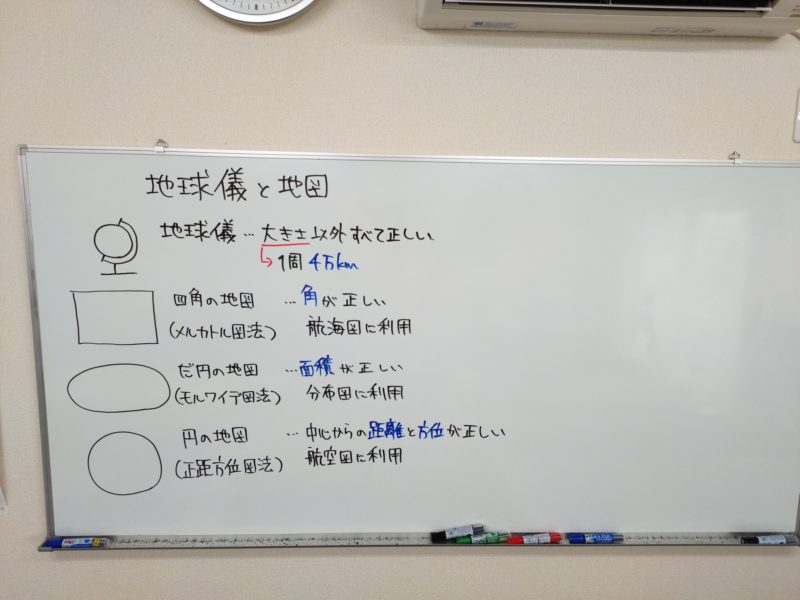 地球儀と地図
地球儀…大きさ以外すべて正しい
↳1周 4万km
四角の地図 …角が正しい
(メルカトル図法) 航海図に利用
だ円の地図 …面積が正しい
(モルワイデ図法) 分布図に利用
円の地図 …中心からの距離と方位が正しい
(正距方位図法) 航空図に利用